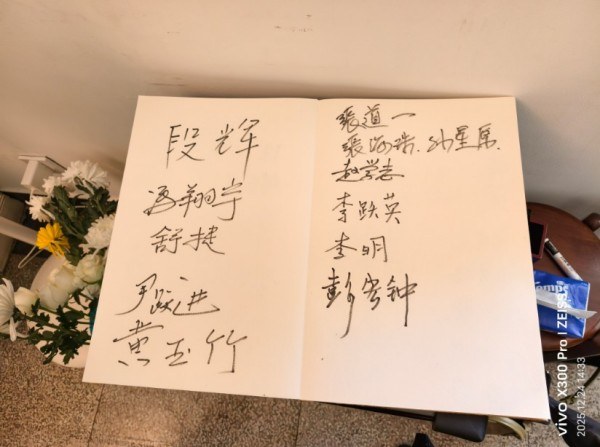 段辉
冯翔宇
舒捷
尹跃进
黄玉竹
张道一
张海珠. 孙星辰.
赵学志
李跃英
李明
彭容钟
vivo X300 Pro | ZEISS
2025.12.24 14:33